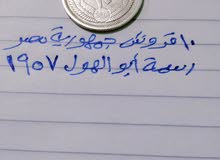 ١٠ قروش جمهورية مصر
رسمة أبو الهول ١٩٥٧